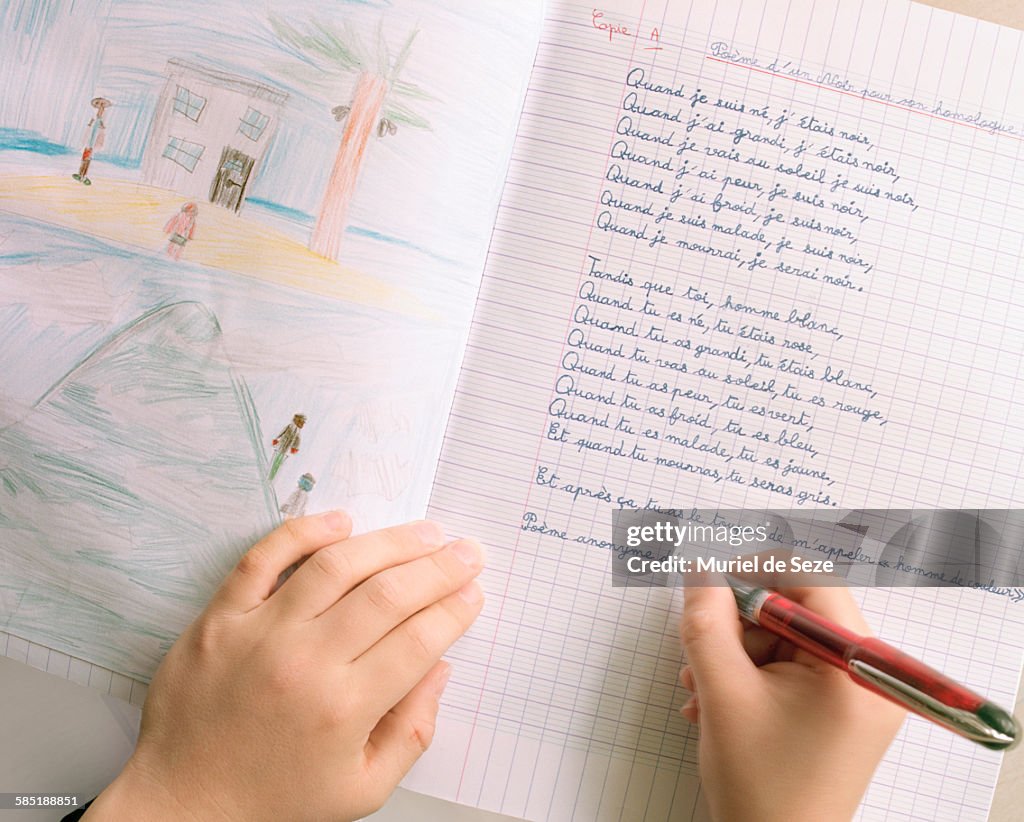 Copie A
Poème d'un Noir pour son homologue
Quand je suis né, j'étais noir,
Quand j'ai grandi, j'étais noir,
Quand je vais au soleil je suis noir,
Quand j'ai peur, je suis noir,
Quand j'ai froid, je suis noir,
Quand je suis malade, je suis noir,
Quand je mourrai, je serai noir.
Tandis que toi, homme blanc,
Quand tu es né, tu étais rose,
Quand tu as grandi, tu étais blanc,
Quand tu vas au soleil, tu es rouge,
Quand tu as peur, tu es vert,
Quand tu as froid, tu es bleu,
Quand tu es malade, tu es jaune,
Et quand tu mourras, tu seras gris.
Et après ça, tu as le de m'appeler « homme de couleur »
Poème anonyme
gettyimages
Muriel de Seze
585188851